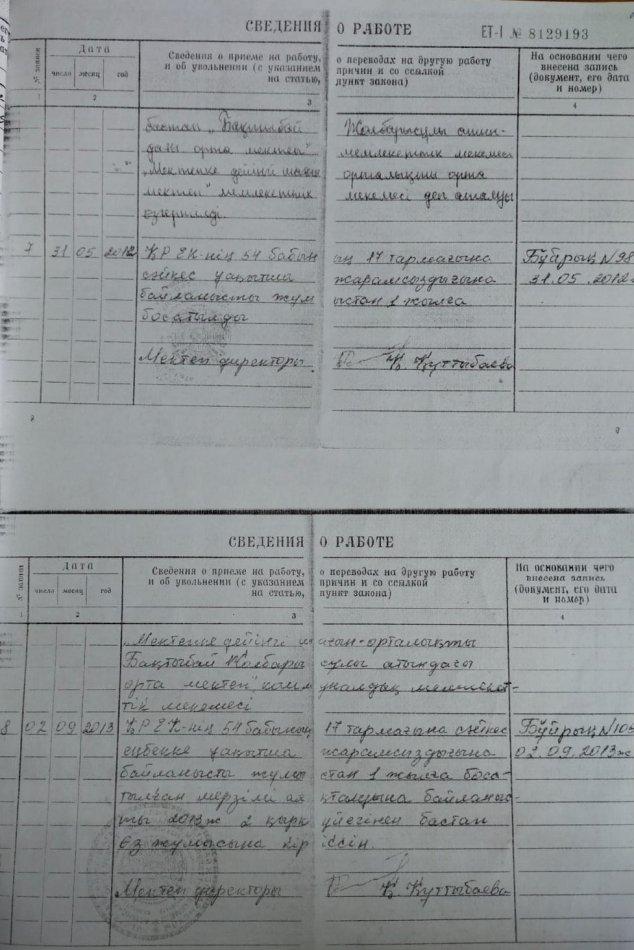 СВЕДЕНИЯ О РАБОТЕ ЕТ-I № 8129193
№ записи Дата Сведения о приеме на работу, о переводах на другую работу На основании чего
число месяц год и об увольнении (с указанием причин и со ссылкой внесена запись
на статью, пункт закона) (документ, его дата
и номер)
2 3 4
бастап „Бақтыбай Жолбарысұлы
орта мектебі"
"Мектепке дейінгі шағын орталықты орта
мектеп" мемлекеттік мекемесі деп аталуы
өзгертілді.
7 31 05 2012 ҚР ЕК-нің 54 бабының 17 тармағына Бұйрық N98
сәйкес уақытша жарамсыздығына 31.05.2012
байланысты жұмыстан 1 жылға
босатылды
Мектеп директоры Қ. Құттыбаева
СВЕДЕНИЯ О РАБОТЕ
Дата Сведения о приеме на работу, о переводах на другую работу На основании чего
число месяц год и об увольнении (с указанием причин и со ссылкой внесена запись
на статью, пункт закона) (документ, его дата
и номер)
2 3 4
„Мектепке дейінгі шағын-орталықты
Бақтыбай Жолбарысұлы атындағы
орта мектеп" коммуналдық мемлекет-
тік мекемесі
8 02 09 2013 ҚР ЕК-нің 54 бабының 17 тармағына сәйкес Бұйрық N
еңбекке уақытша жарамсыздығына 02.09.2013ж
байланысты жұмыстан 1 жылға боса-
тылған мерзімі аяқталуына байланыс-
ты 2013ж 2 қыркүйегінен бастап
өз жұмысына кіріссін.
Мектеп директоры Қ. Құттыбаева